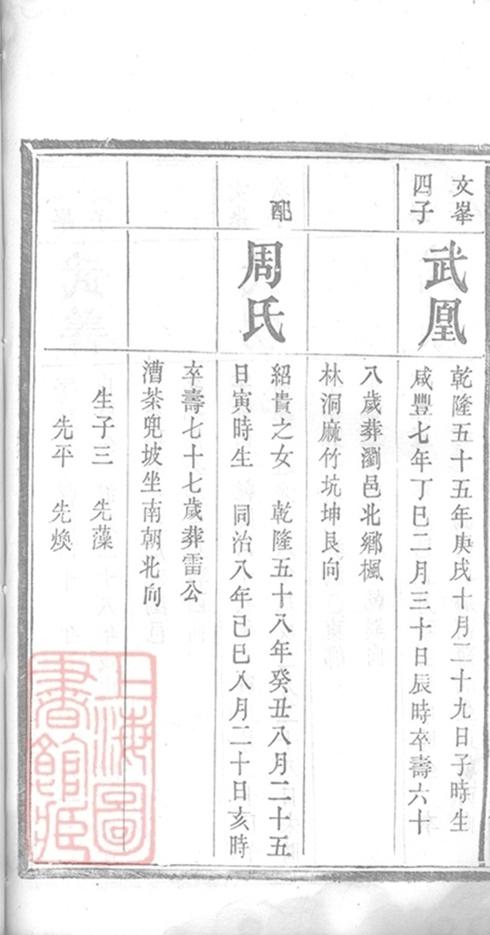 文峯
四子
武凰
乾隆五十五年庚戌十月二十九日子時生
咸豐七年丁巳二月三十日辰時卒壽六十
八歲葬瀏邑北鄉楓
林洞麻竹坑坤艮向
配
周氏
紹貴之女 乾隆五十八年癸丑八月二十五
日寅時生 同治八年己巳八月二十日亥時
卒壽七十七歲葬雷公
漕茶兜坡坐南朝北向
生子三 先藻
先平 先煥
上海圖
書館藏